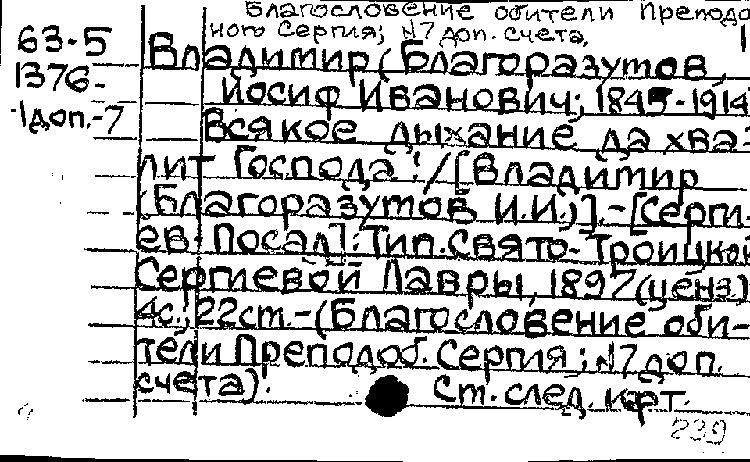 Благословение обители Преподоб
63-5 ного Сергия; №7 доп. счета, 1
1376- Владимир (Благоразумов,
1доп.-7 Иосиф Иванович; 1845-1914
Всякое дыхание да хва-
лит Господа! / [Владимир
(Благоразумов И.И.)].-[Серги-
ев Посад]: Тип. Свято-Троицкой
Сергиевой Лавры, 1897 (ценз.)
4с.; 22см.-(Благословение оби-
тели Преподоб. Сергия; №7 доп.
счета).
Ст. след. карт.
239